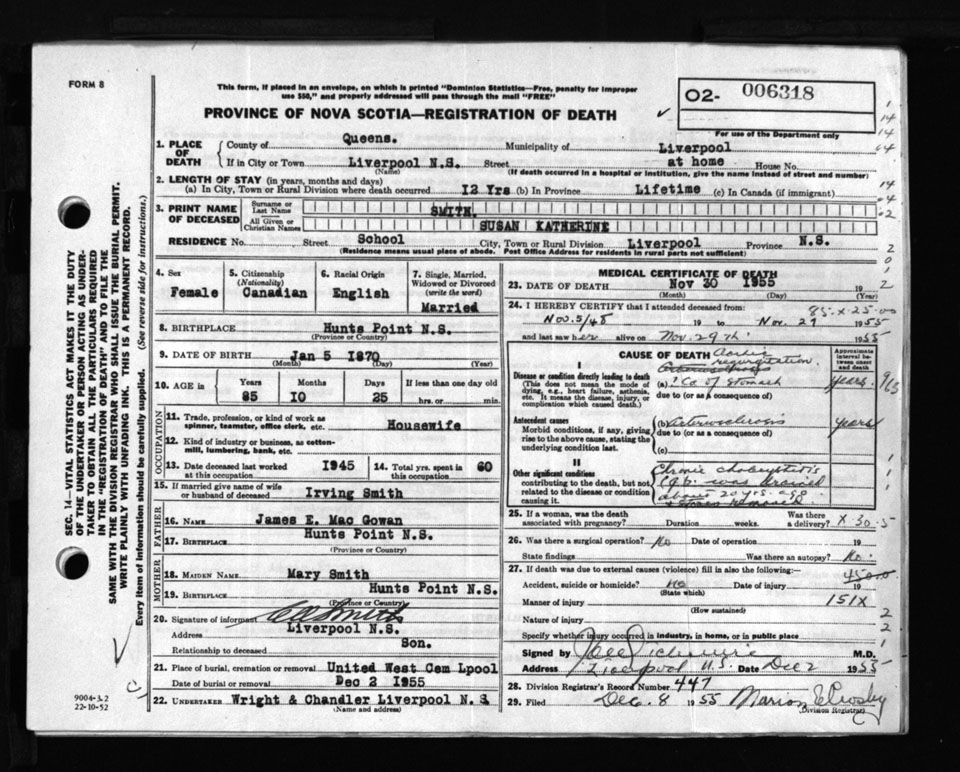 FORM 8
This form, if placed in an envelope, on which is printed "Dominion Statistics—Free, penalty for improper
use $50," and properly addressed will pass through the mail "FREE"
PROVINCE OF NOVA SCOTIA—REGISTRATION OF DEATH
O2- 006318
For use of the Department only
1. PLACE OF DEATH
County of Queens. Municipality of Liverpool
If in City or Town Liverpool N.S. Street at home House No.
(Name) (If death occurred in a hospital or institution, give the name instead of street and number)
2. LENGTH OF STAY (in years, months and days)
(a) In City, Town or Rural Division where death occurred 12 Yrs (b) In Province Lifetime (c) In Canada (if immigrant)
3. PRINT NAME OF DECEASED
Surname or Last Name SMITH.
All Given or Christian Names SUSAN KATHERINE
RESIDENCE No. Street School City, Town or Rural Division Liverpool Province N.S.
(Residence means usual place of abode. Post Office Address for residents in rural parts not sufficient)
4. Sex
Female
5. Citizenship
(Nationality)
Canadian
6. Racial Origin
English
7. Single, Married, Widowed or Divorced
(write the word)
Married
8. BIRTHPLACE Hunts Point N.S.
(Province or Country)
9. DATE OF BIRTH Jan 5 1870
(Month) (Day) (Year)
10. AGE in Years Months Days If less than one day old
85 10 25 hrs. or min.
OCCUPATION
11. Trade, profession, or kind of work as
spinner, teamster, office clerk, etc. Housewife
12. Kind of industry or business, as cotton-
mill, lumbering, bank, etc.
13. Date deceased last worked
at this occupation 1945
14. Total yrs. spent in
this occupation 60
15. If married give name of wife
or husband of deceased Irving Smith
FATHER
16. NAME James E. Mac Gowan
17. BIRTHPLACE Hunts Point N.S.
(Province or Country)
MOTHER
18. MAIDEN NAME Mary Smith
19. BIRTHPLACE Hunts Point N.S.
(Province or Country)
20. Signature of informant Smith
Address Liverpool N.S.
Relationship to deceased Son.
21. Place of burial, cremation or removal United West Cem Lpool
Date of burial or removal Dec 2 1955
22. UNDERTAKER Wright & Chandler Liverpool N.S.
(Name and address)
MEDICAL CERTIFICATE OF DEATH
23. DATE OF DEATH Nov 30 1955 19
(Month) (Day) (Year)
24. I HEREBY CERTIFY that I attended deceased from: 85.x.25.00
Nov. 5/48 19 to Nov. 29 1955
and last saw her alive on Nov. 29th 1955
CAUSE OF DEATH
Approximate interval between onset and death
Aortic
regurgitation
I
Disease or condition directly leading to death
(This does not mean the mode of
dying, e.g., heart failure, asthenia,
etc. It means the disease, injury, or
complication which caused death.)
(a) ? Ca of stomach years.
due to (or as a consequence of)
Antecedent causes
Morbid conditions, if any, giving
rise to the above cause, stating the
underlying condition last.
(b) Arteriosclerosis years
due to (or as a consequence of)
(c)
II
Other significant conditions
contributing to the death, but not
related to the disease or condition
causing it.
Chronic cholecystitis
(g.b. was drained
about 20 yrs. ago
& stones removed
25. If a woman, was the death
associated with pregnancy? Duration weeks. Was there
a delivery? X.30.5
26. Was there a surgical operation? No Date of operation 19
State findings Was there an autopsy? No.
27. If death was due to external causes (violence) fill in also the following:—
Accident, suicide or homicide? no Date of injury 19
(State which)
Manner of injury 151X
(How sustained)
Nature of injury
Specify whether injury occurred in industry, in home, or in public place
Signed by M.D.
Address Liverpool N.S. Date Dec 2 1955
28. Division Registrar's Record Number 447
29. Filed Dec. 8 1955 Marion E Crosby
(Division Registrar)
SEC. 14—VITAL STATISTICS ACT MAKES IT THE DUTY
OF THE UNDERTAKER OR PERSON ACTING AS UNDER-
TAKER TO OBTAIN ALL THE PARTICULARS REQUIRED
IN THE "REGISTRATION OF DEATH" AND TO FILE THE
SAME WITH THE DIVISION REGISTRAR WHO SHALL ISSUE THE BURIAL PERMIT.
WRITE PLAINLY WITH UNFADING INK. THIS IS A PERMANENT RECORD.
Every item of information should be carefully supplied. (See reverse side for instructions.)
9004-3.2
22-10-52